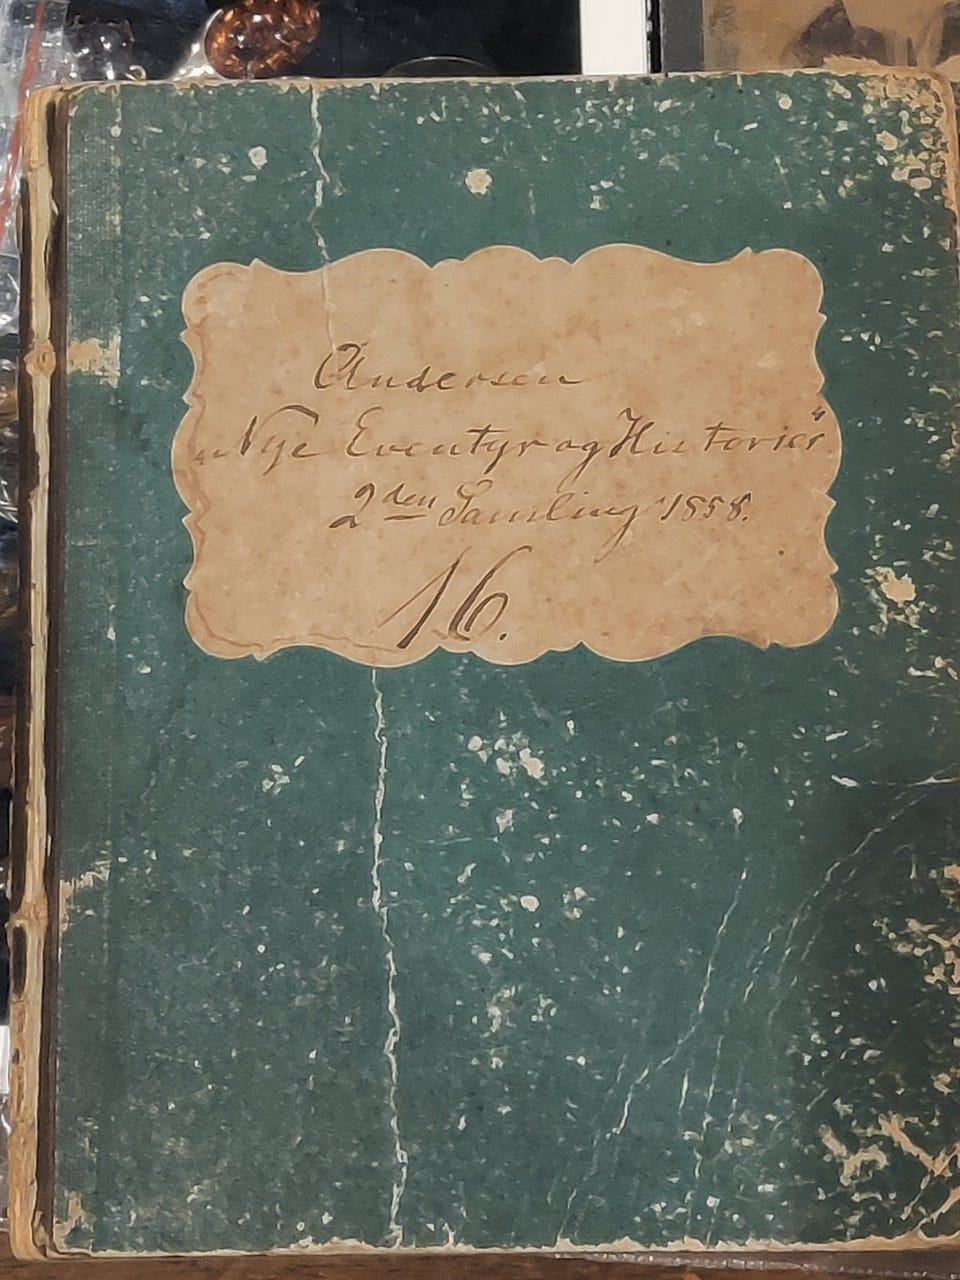 Andersen
„Nye Eventyr og Historier“
2den Samling 1858.
16.